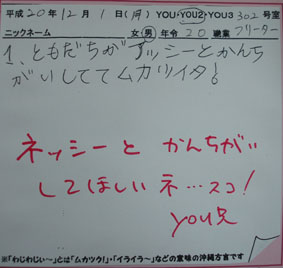 平成20年12月1日(月) YOU・YOU2・YOU3 302号室
ニックネーム 女・男 年令20 職業フリーター
1、ともだちがアッシーとかんち
がいしててムカツイタ!
ネッシーと かんちがい
してほしいネ…スコ!
you兄
※「わじわじぃ~」とは「ムカツク!」・「イライラ~」などの意味の沖縄方言です